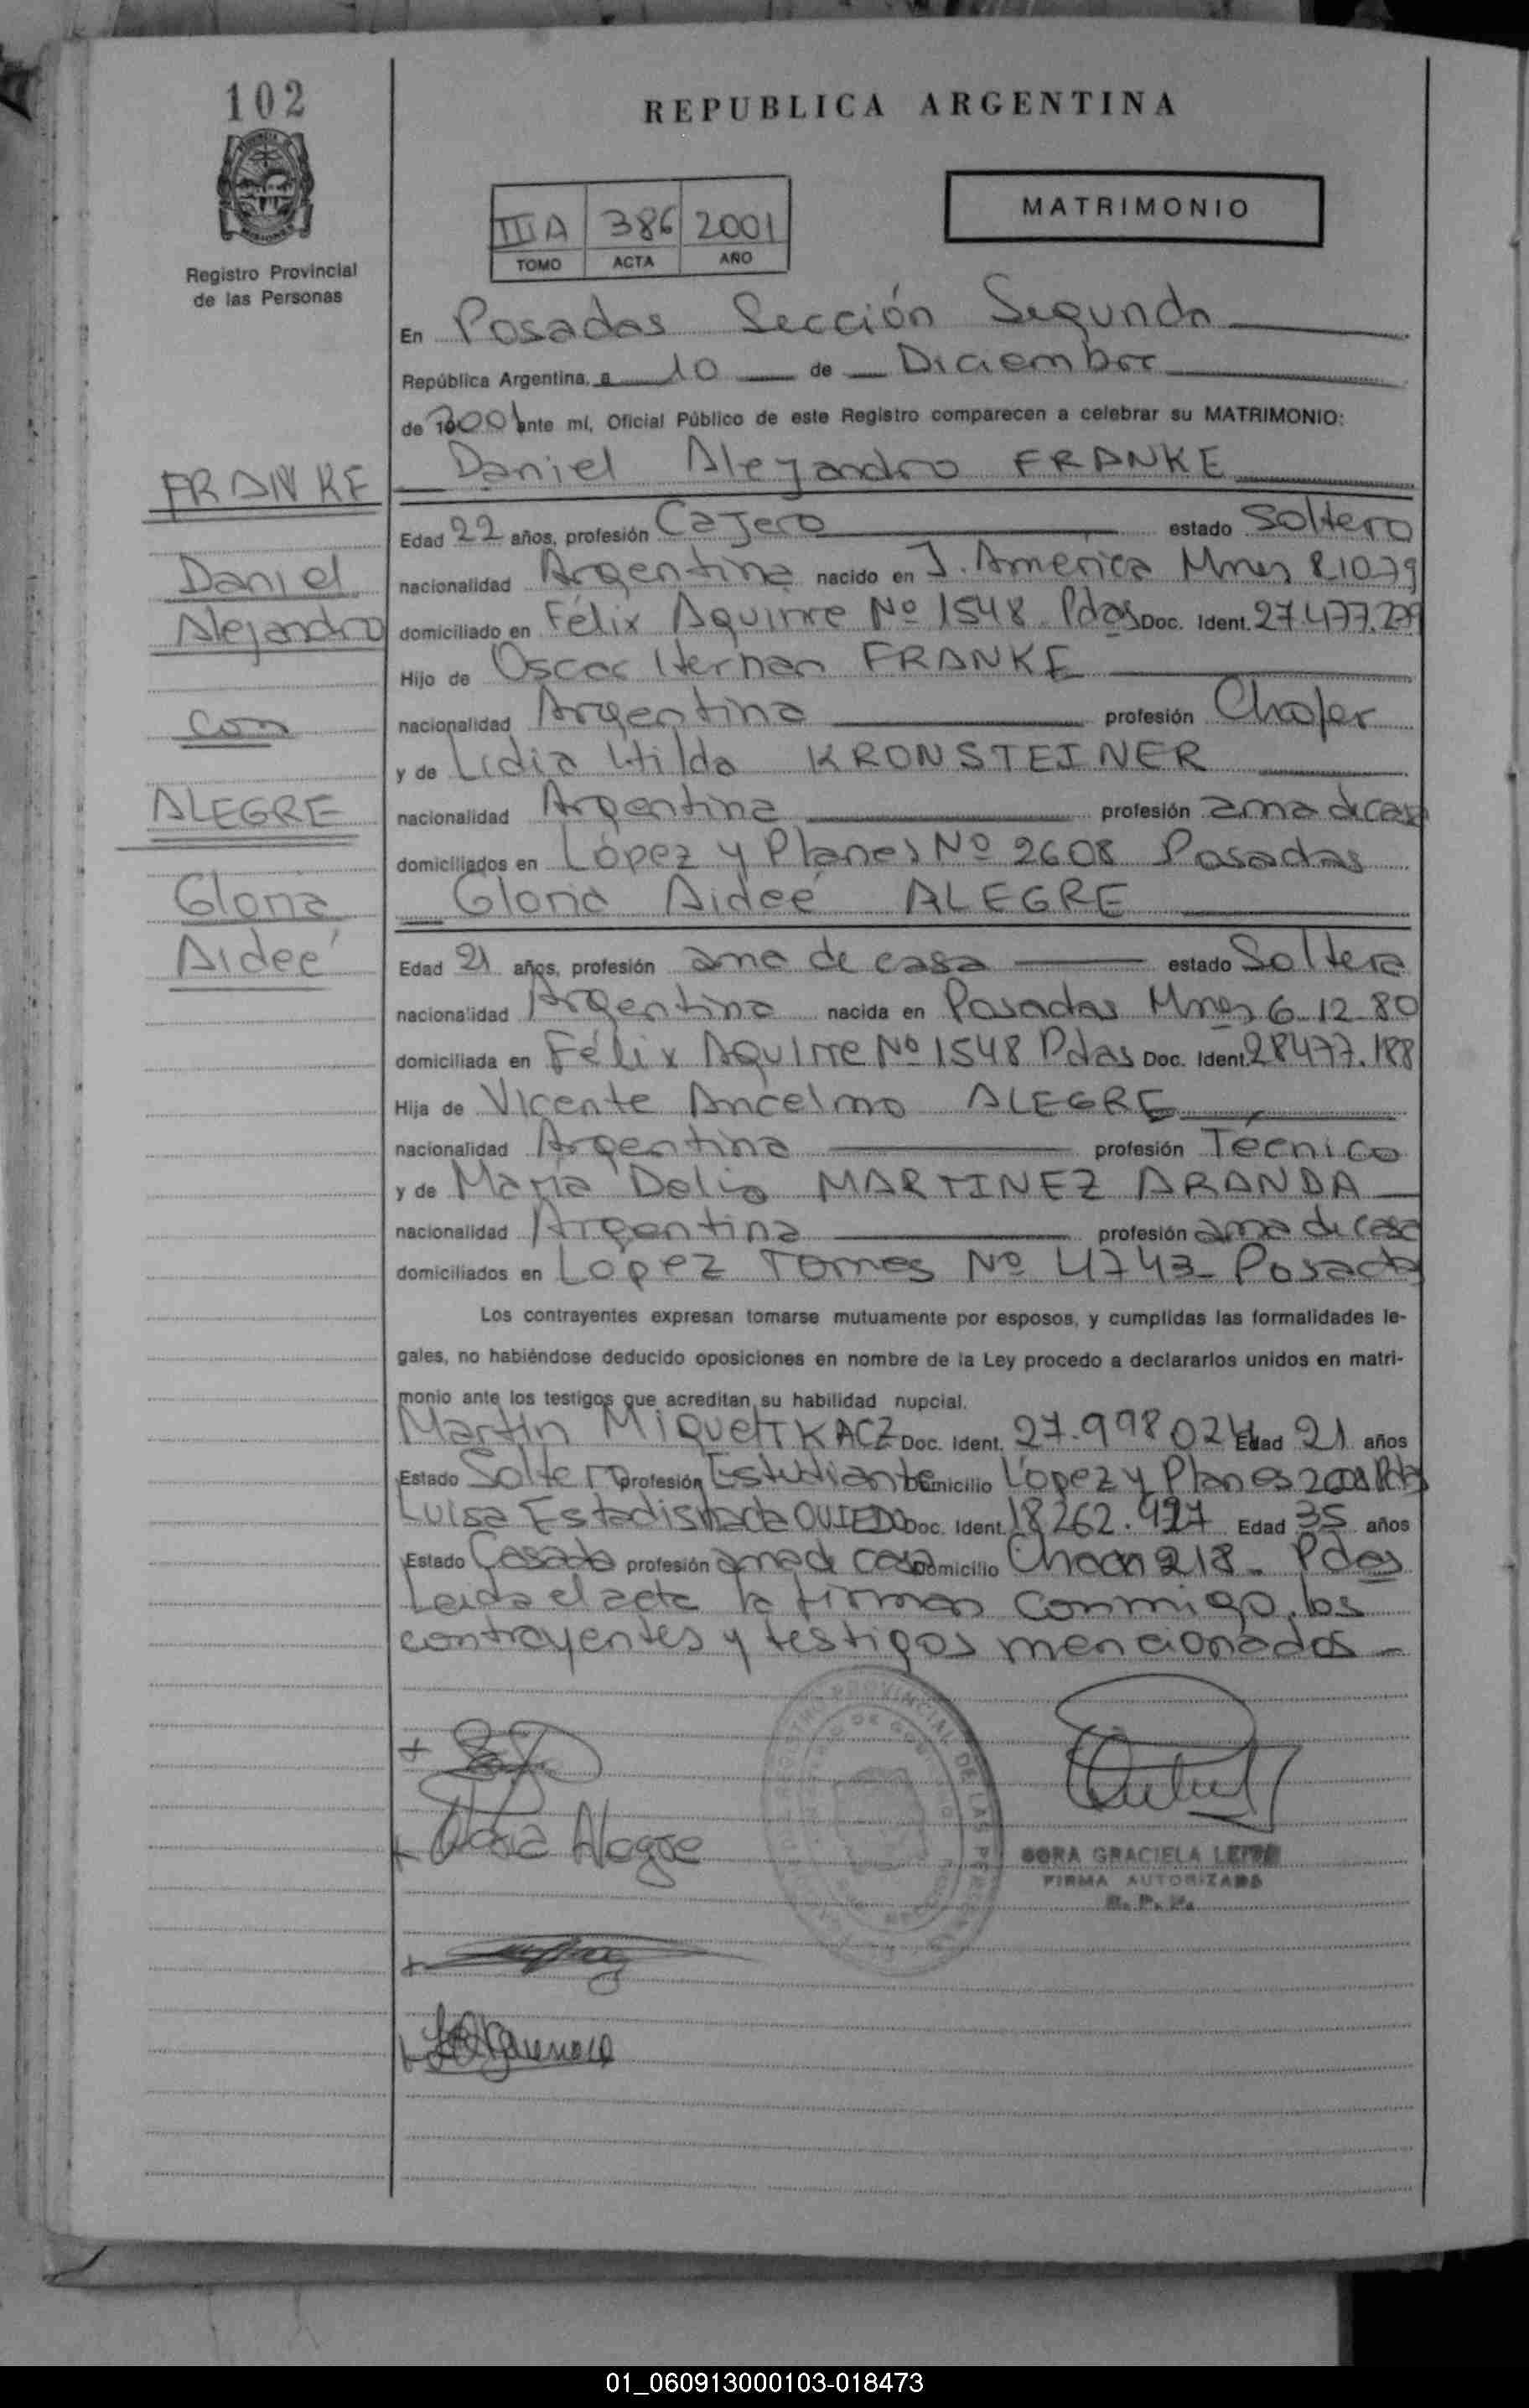 102
REPUBLICA ARGENTINA
MATRIMONIO
III A 386 2001
TOMO ACTA AÑO
Registro Provincial
de las Personas
En Posadas Sección Segunda
República Argentina, a 10 de Diciembre
de 2001 ante mí, Oficial Público de este Registro comparecen a celebrar su MATRIMONIO:
FRANKE
Daniel Alejandro FRANKE
Edad 22 años, profesión Cajero estado Soltero
Daniel
nacionalidad Argentina nacido en J. America Mnes 8.10.79
Alejandro
domiciliado en Félix Aguirre Nº 1548 Pdas Doc. Ident. 27.477.279
Hijo de Oscar Hernan FRANKE
con
nacionalidad Argentina profesión Chofer
y de Lidia Hilda KRONSTEINER
ALEGRE
nacionalidad Argentina profesión ama de casa
domiciliados en López y Planes Nº 2608 Posadas
Gloria
Gloria Aideé ALEGRE
Aideé
Edad 21 años, profesión ama de casa estado Soltera
nacionalidad Argentina nacida en Posadas Mnes 6-12-80
domiciliada en Félix Aguirre Nº 1548 Pdas Doc. Ident. 28477.188
Hija de Vicente Ancelmo ALEGRE
nacionalidad Argentina profesión Técnico
y de María Delia MARTINEZ ARANDA
nacionalidad Argentina profesión ama de casa
domiciliados en Lopez Torres Nº 4743- Posadas
Los contrayentes expresan tomarse mutuamente por esposos, y cumplidas las formalidades le-
gales, no habiéndose deducido oposiciones en nombre de la Ley procedo a declararlos unidos en matri-
monio ante los testigos que acreditan su habilidad nupcial.
Martin Miguel TKACZ Doc. Ident. 27.998024 Edad 21 años
Estado Soltero profesión Estudiante Domicilio López y Planes Pdas
Luisa OVIEDO Doc. Ident. 18262.927 Edad 35 años
Estado Casada profesión ama de casa Domicilio 218- Pdas
Leida el acta la firman conmigo, los
contrayentes y testigos mencionados -
Gloria Alegre
REGISTRO PROVINCIAL DE LAS PERSONAS
GRACIELA
FIRMA AUTORIZADA
R. P. P.
01_060913000103-018473